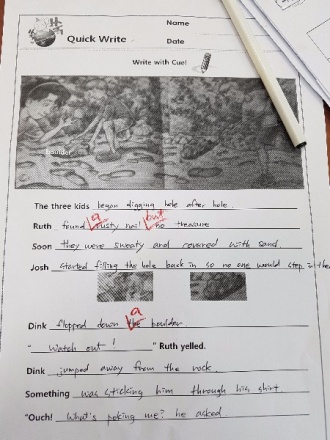 Quick Write
Name
Date
Write with Cue!
boulder
The three kids began digging hole after hole.
Ruth found a rusty nail but no treasure
Soon they were sweaty and covered with sand.
Josh started filling the hole back in so no one would step in the
Dink flopped down a boulder
" Watch out ! " Ruth yelled.
Dink jumped away from the rock
Something was sticking him through his shirt
"Ouch! What's poking me? he asked